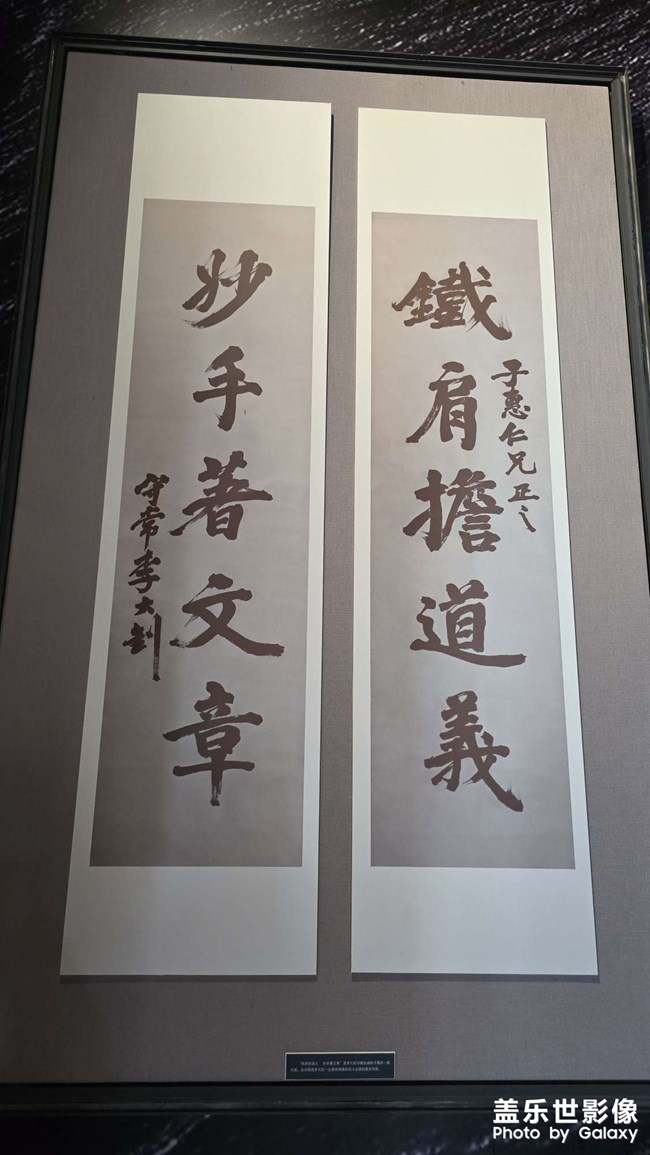 鐵肩擔道義
子惠仁兄正之
妙手著文章
守常李大釗
盖乐世影像
Photo by Galaxy